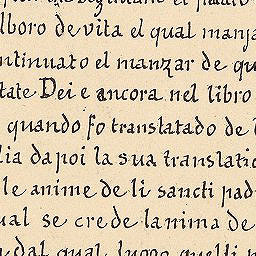 lboro de vita el qual manja
ntinuato el manzar de qu
tate Dei e ancora nel libro
quando fo translatado de
lia da poi la sua translatio
le anime de li sancti pad
ual se crede lanima de
dal qual luogo quelli